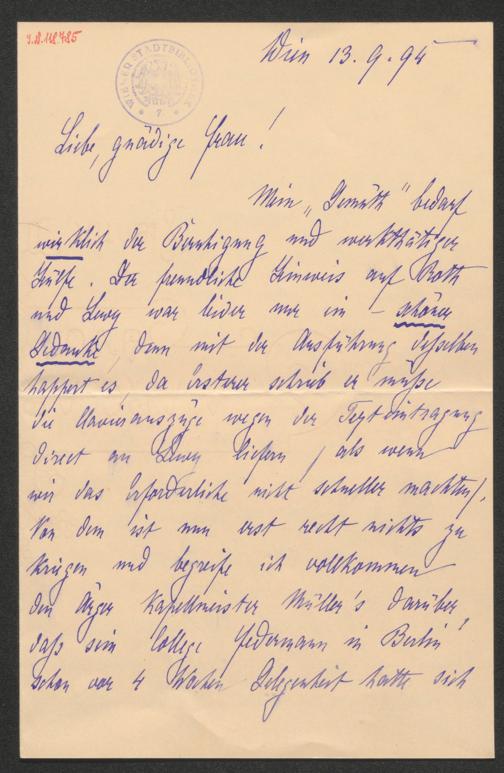 I.N. 118.785
WIENER STADTBIBLIOTHEK
* 7 *
Wien 13.9.95
Liebe, gnädige Frau!
Mein „Gemüth“ bedarf
wirklich der Beruhigung und werkthätiger
Hülfe. Der freundliche Hinweis auf Roth
und Lewy war leider nur ein – schöner
Gedanke, denn mit der Ausführung desselben
happert es, da ersterer schrieb er müsse
die Clavierauszüge wegen der Texteintragung
direct an Lewy liefern (als wenn
wir das Erforderliche nicht schneller machten).
Von dem ist nun erst recht nichts zu
kriegen und begreife ich vollkommen
den Ärger Kapellmeister Müller's darüber,
daß sein College Federmann in Berlin
schon vor 4 Wochen Gelegenheit hatte sich